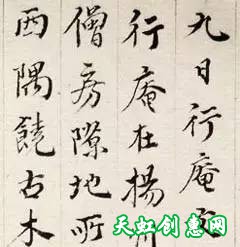 九日行庵文
行庵在揚州
僧房隙地所
西隅饒古木
天虹创意网